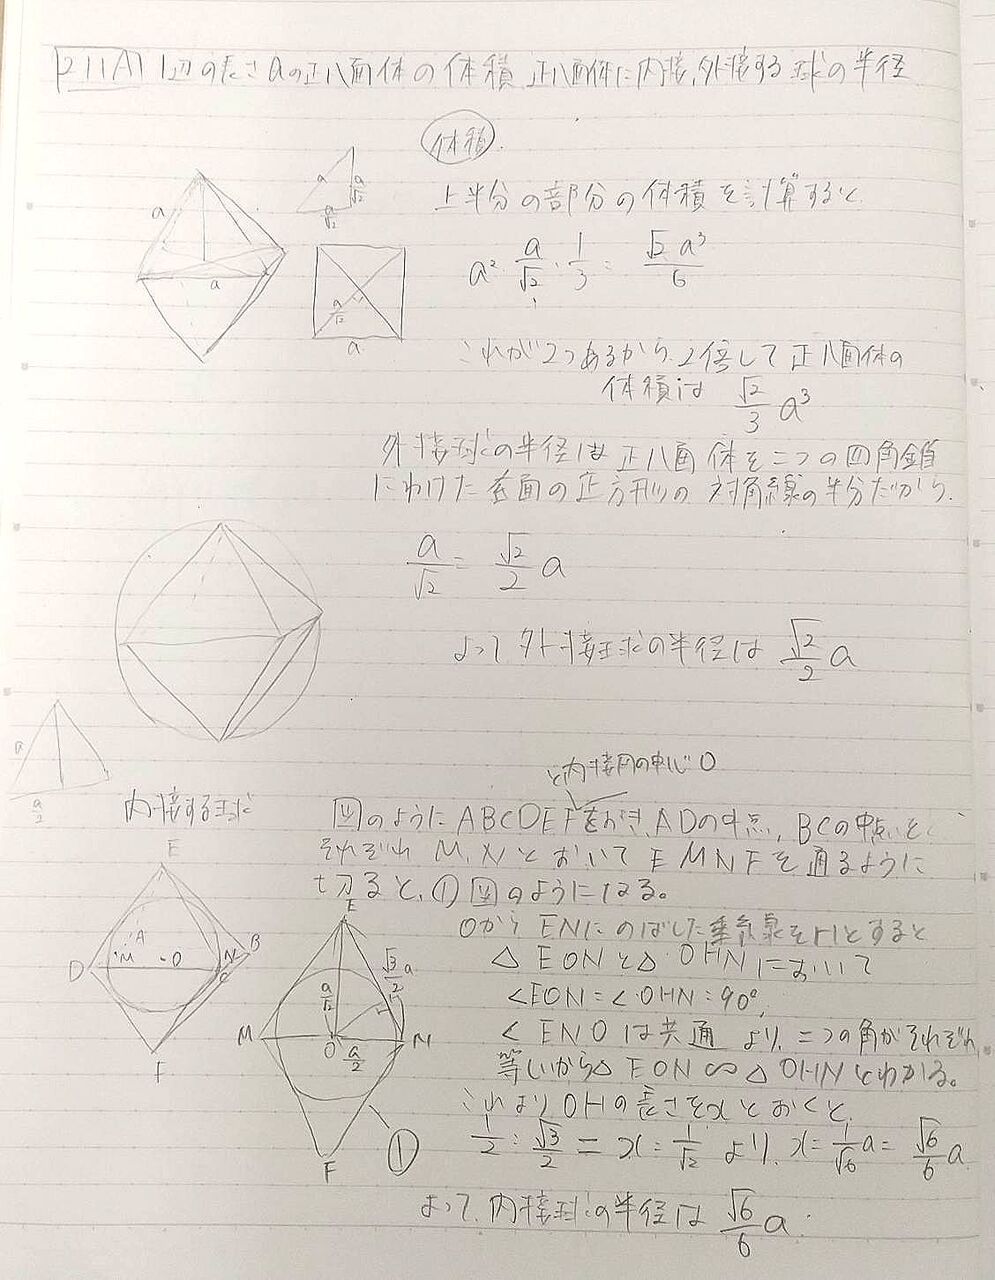 211A 1辺の長さaの正八面体の体積,正八面体に内接,外接する球の半径
体積
a
a
a/√2
a/√2
a
a/√2
a
上半分の部分の体積を計算すると
a²・a/√2・1/3 = √2a³/6
これが2つあるから,2倍して正八面体の
体積は √2/3 a³
外接球の半径は正八面体を二つの四角錐
にわけた底面の正方形の対角線の半分だから
a/√2 = √2/2 a
よって外接球の半径は √2/2 a
a
a/2
内接する球
と内接円の中心O
図のようにABCDEFをおき,ADの中点,BCの中点を
それぞれ M,NとおいてEMNFを通るように
切ると,①図のようになる。
OからENにのばした垂線をHとすると
△EONと△OHNにおいて
∠EON=∠OHN=90°,
∠ENOは共通 より,二つの角がそれぞれ
等しいから△EON∽△OHNとわかる。
これよりOHの長さをxとおくと,
1/2:√3/2 = x:1/√2 より, x=1/√6 a= √6/6 a
よって,内接球の半径は √6/6 a
E
A
B
M
O
N
D
C
F
E
√3/2 a
a/√2
M
O
a/2
N
F
①